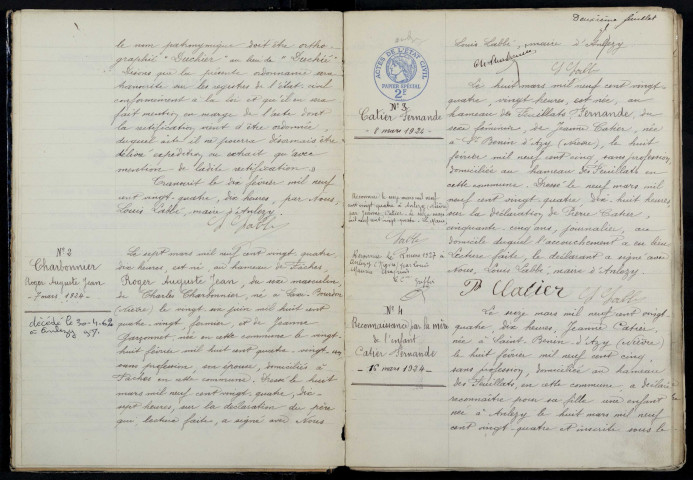 le nom patronymique doit être ortho-
graphié "Duchier" au lieu de "Duchié"
Disons que la présente ordonnance sera
transcrite sur les registres de l'état civil
conformément à la loi et qu'il en sera
fait mention en marge de l'acte dont
la rectification vient d'être ordonnée
duquel acte il ne pourra désormais être
délivré expédition ou extrait qu'avec
mention de ladite rectification.
Transcrit le dix février mil neuf
cent vingt-quatre, dix heures, par Nous,
Louis Labbé, maire d'Anlezy.
L. Labbé
N° 2
Charbonnier
Roger Auguste Jean
7 mars 1924
décédé le 30-4-62
à Anlezy
Le sept mars mil neuf cent vingt quatre
dix heures, est né au hameau de Fâches,
Roger Auguste Jean, de sexe masculin,
de Charles Charbonnier, né à
(Nièvre) le vingt six juin mil huit cent
quatre-vingt, fermier, et de Jeanne
Garçonnet, née en cette commune le vingt-
huit février mil huit cent quatre-vingt-
sans profession, son épouse, domiciliés à
Fâches en cette commune. Dressé le huit
mars mil neuf cent vingt-quatre, dix-
sept heures, sur la déclaration du père
qui, lecture faite, a signé avec Nous
Deuxième feuillet
Louis Labbé, maire d'Anlezy
L. Labbé
ACTES DE L'ÉTAT CIVIL
PAPIER SPÉCIAL
2F
N° 3
Catier Fernande
8 mars 1924
Le huit mars mil neuf cent vingt-
quatre, vingt heures, est née, au
hameau des Feuillats Fernande, du
sexe féminin, de Jeanne Catier, née
à St Benin d'Azy (Nièvre), le huit
février mil neuf cent cinq, sans profession,
domiciliée au hameau des Feuillats en
cette commune. Dressé le neuf mars mil
neuf cent vingt-quatre, dix-huit heures
sur la déclaration de Pierre Catier,
cinquante-cinq ans, journalier, au
domicile duquel l'accouchement a eu lieu.
Lecture faite, le déclarant a signé avec
Nous, Louis Labbé, maire d'Anlezy.
P. Catier L. Labbé
Reconnue le seize mars mil neuf
cent vingt-quatre à Anlezy (Nièvre)
par Jeanne Catier. Le seize mars
mil neuf cent vingt-quatre. Le Maire,
Labbé
N° 4
Reconnaissance par la mère
de l'enfant
Catier Fernande
16 mars 1924
Le seize mars mil neuf cent vingt-
quatre, dix heures, Jeanne Catier,
née à Saint-Benin-d'Azy (Nièvre)
le huit février mil neuf cent cinq,
sans profession, domiciliée au hameau
des Feuillats, en cette commune, a déclaré
reconnaître pour sa fille une enfant
née à Anlezy le huit mars mil neuf
cent vingt-quatre et inscrite sous le